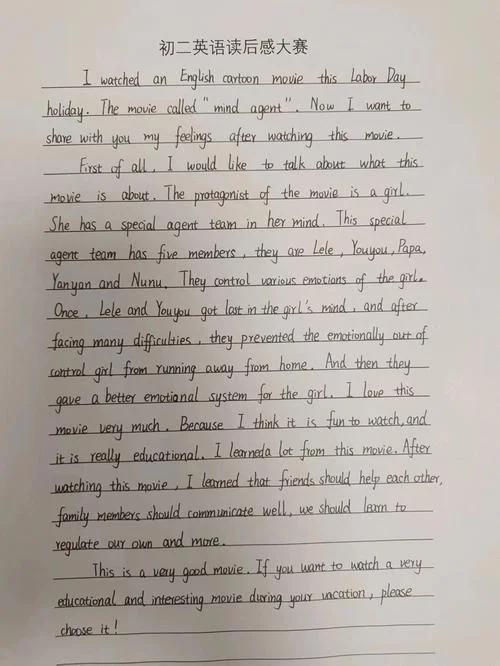 初二英语读后感大赛
I watched an English cartoon movie this Labor Day
holiday. The movie called "mind agent". Now I want to
share with you my feelings after watching this movie.
First of all, I would like to talk about what this
movie is about. The protagonist of the movie is a girl.
She has a special agent team in her mind. This special
agent team has five members, they are Lele, Youyou, Papa,
Yanyan and Nunu. They control various emotions of the girl.
Once, Lele and Youyou got lost in the girl's mind, and after
facing many difficulties, they prevented the emotionally out of
control girl from running away from home. And then they
gave a better emotional system for the girl. I love this
movie very much. Because I think it is fun to watch, and
it is really educational. I learneda lot from this movie. After
watching this movie, I learned that friends should help each other,
family members should communicate well, we should learn to
regulate our own and more.
This is a very good movie. If you want to watch a very
educational and interesting movie during your vacation, please
choose it!